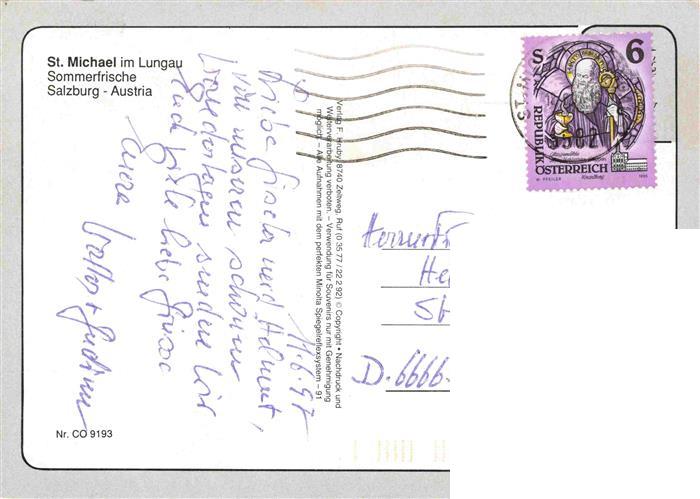 St. Michael im Lungau
Sommerfrische
Salzburg - Austria
11.6.97
Liebe Gisela und Helmut,
von unseren schönen
Wandertagen senden wir
Euch viele liebe Grüsse
Eure Walter + Gudrun
Nr. CO 9193
Verlag F. Hruby, 8740 Zeltweg, Ruf (0 35 77 / 22 2 92) © Copyright • Nachdruck und
Weiterverarbeitung verboten. – Verwendung für Souvenirs nur mit Genehmigung
möglich. – Alle Aufnahmen mit dem perfekten Minolta Spiegelreflexsystem – 91
S 6
REPUBLIK
ÖSTERREICH
1993
He
56
D. 6666